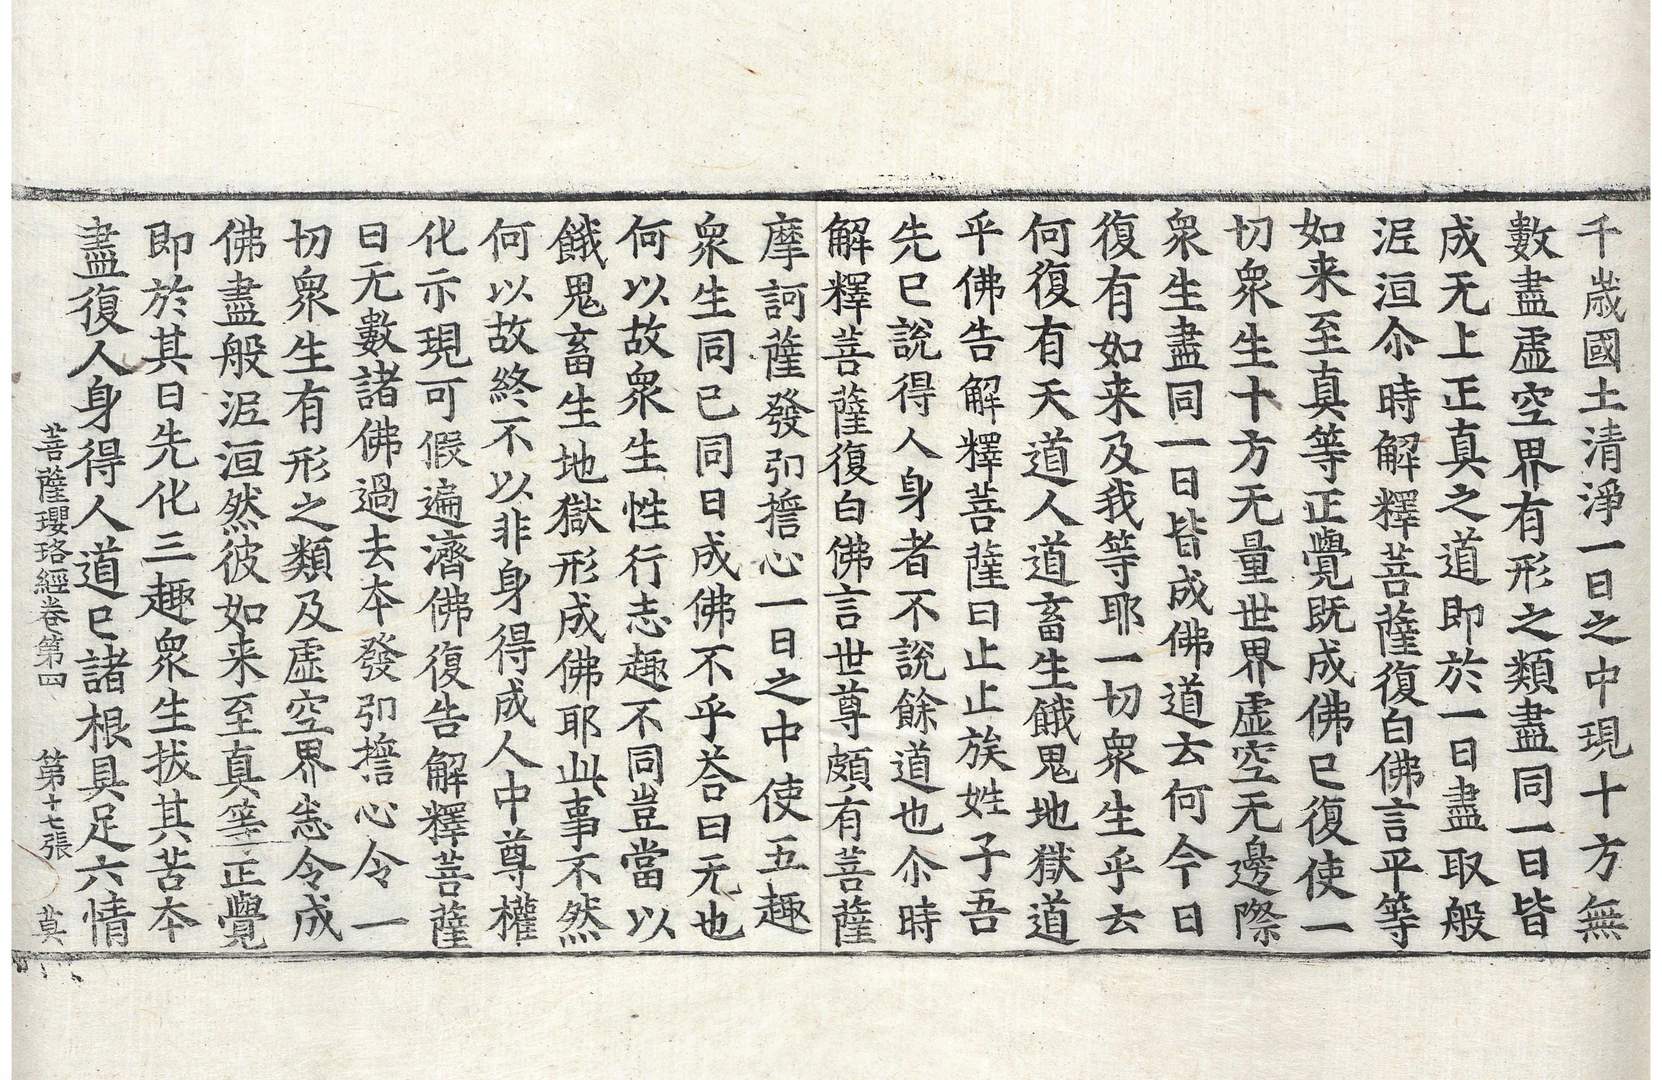 千歳國土清淨一日之中現十方無
數盡虛空界有形之類盡同一日皆
成无上正真之道即於一日盡取般
泥洹尒時解釋菩薩復白佛言平等
如来至真等正覺旣成佛已復使一
切衆生十方无量世界虛空无邊際
衆生盡同一日皆成佛道去何今日
復有如来及我等耶一切衆生乎去
何復有天道人道畜生餓鬼地獄道
乎佛告解釋菩薩曰止止族姓子吾
先已說得人身者不說餘道也尒時
解釋菩薩復白佛言世尊頗有菩薩
摩訶薩發弘擔心一日之中使五趣
衆生同已同日成佛不乎荅曰无也
何以故衆生性行志趣不同豈當以
餓鬼畜生地獄形成佛耶此事不然
何以故終不以非身得成人中尊權
化示現可假遍濟佛復告解釋菩薩
曰无數諸佛過去本發弘擔心令一
切衆生有形之類及虛空界悉令成
佛盡般泥洹然彼如来至真等正覺
即於其日先化三趣衆生拔其苦本
盡復人身得人道已諸根具足六情
菩薩瓔珞經卷第四 第十七張 莫